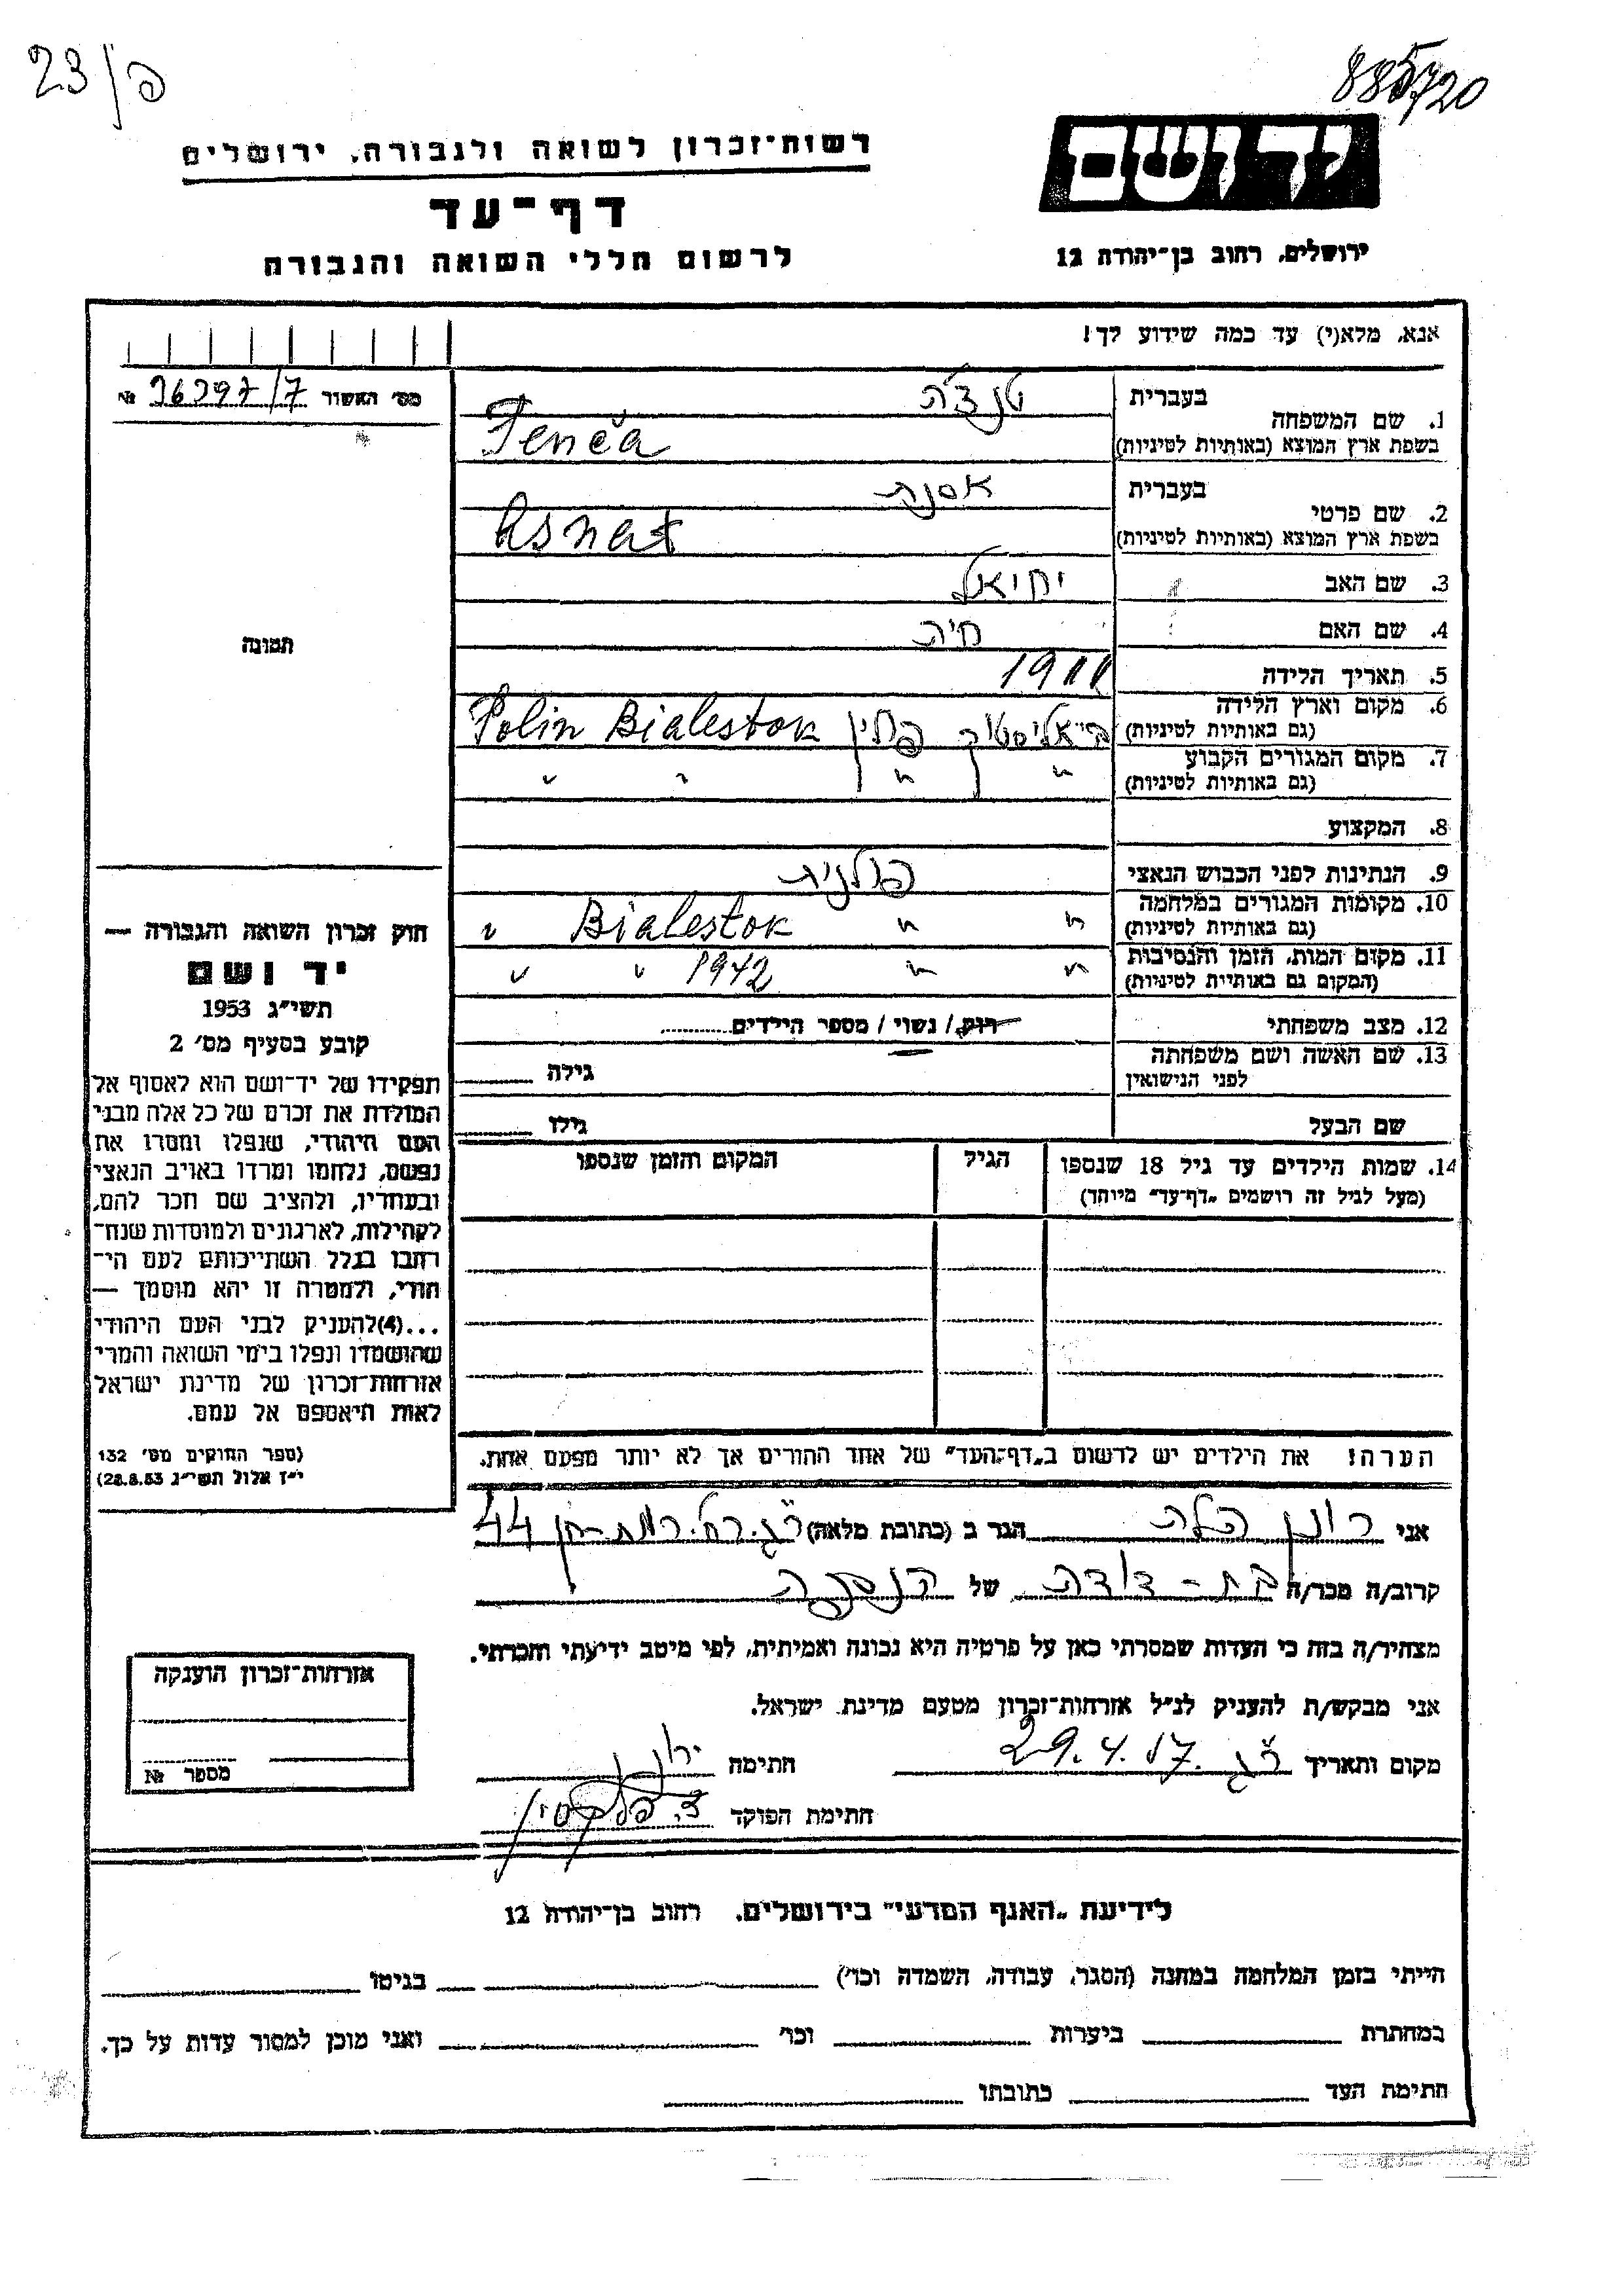 23/פ
885720
רשות־זכרון לשואה ולגבורה, ירושלים
יד ושם
דף־עד
לרשום חללי השואה והגבורה
ירושלים, רחוב בן־יהודה 12
אנא, מלא(י) עד כמה שידוע לך!
מס׳ האשור 96397/7 №
בעברית טנצ'ה
1. שם המשפחה
בשפת ארץ המוצא (באותיות לטיניות) Tenča
בעברית אסנת
2. שם פרטי
בשפת ארץ המוצא (באותיות לטיניות) Asnat
3. שם האב יחיאל
4. שם האם חיה
תמונה
5. תאריך הלידה 1911
6. מקום וארץ הלידה ביאליסטוק פולין Polin Bialestok
(גם באותיות לטיניות)
7. מקום המגורים הקבוע " " " "
(גם באותיות לטיניות)
8. המקצוע
9. הנתינות לפני הכבוש הנאצי פולנית
10. מקומות המגורים במלחמה " " Bialestok "
(גם באותיות לטיניות)
11. מקום המות, הזמן והנסיבות " " 1942 " "
(המקום גם באותיות לטיניות)
12. מצב משפחתי רווק / נשוי / מספר הילדים
13. שם האשה ושם משפחתה גילה
לפני הנישואין
שם הבעל גילו
14. שמות הילדים עד גיל 18 שנספו הגיל המקום והזמן שנספו
(מעל לגיל זה רושמים „דף־עד" מיוחד)
חוק זכרון השואה והגבורה —
יד ושם
תשי״ג 1953
קובע בסעיף מס׳ 2
תפקידו של יד־ושם הוא לאסוף אל
המולדת את זכרם של כל אלה מבני
העם היהודי, שנפלו ומסרו את
נפשם, נלחמו ומרדו באויב הנאצי
ובעוזריו, ולהציב שם וזכר להם,
לקהילות, לארגונים ולמוסדות שנח־
רבו בגלל השתייכותם לעם הי־
הודי, ולמטרה זו יהא מוסמך —
...(4) להעניק לבני העם היהודי
שהושמדו ונפלו בימי השואה והמרי
אזרחות־זכרון של מדינת ישראל
לאות היאספם אל עמם.
(ספר החוקים מס׳ 132
י״ז אלול תשי״ג 28.8.53)
הערה! את הילדים יש לרשום ב„דף־העד" של אחד ההורים אך לא יותר מפעם אחת.
אני רונן הלה הגר ב (כתובת מלאה) ר"ג. רח'. רמת-חן 44
קרוב/ה מכר/ה בת-דודה של הנספה
מצהיר/ה בזה כי העדות שמסרתי כאן על פרטיה היא נכונה ואמיתית, לפי מיטב ידיעתי והכרתי.
אני מבקש/ת להעניק לנ״ל אזרחות־זכרון מטעם מדינת ישראל.
מקום ותאריך ר"ג. חתימה
חתימת הפוקד
אזרחות־זכרון הוענקה
מספר №
לידיעת „האגף המדעי" בירושלים, רחוב בן־יהודה 12
הייתי בזמן המלחמה במחנה (הסגר, עבודה, השמדה וכו׳) בגיטו
במחתרת ביערות וכו׳ ואני מוכן למסור עדות על כך.
חתימת העד כתובתו